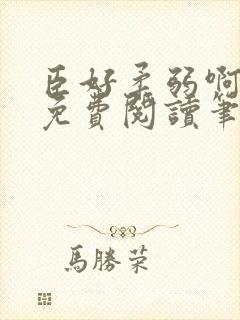 臣好柔弱啊
免費閱讀筆
馬勝荣